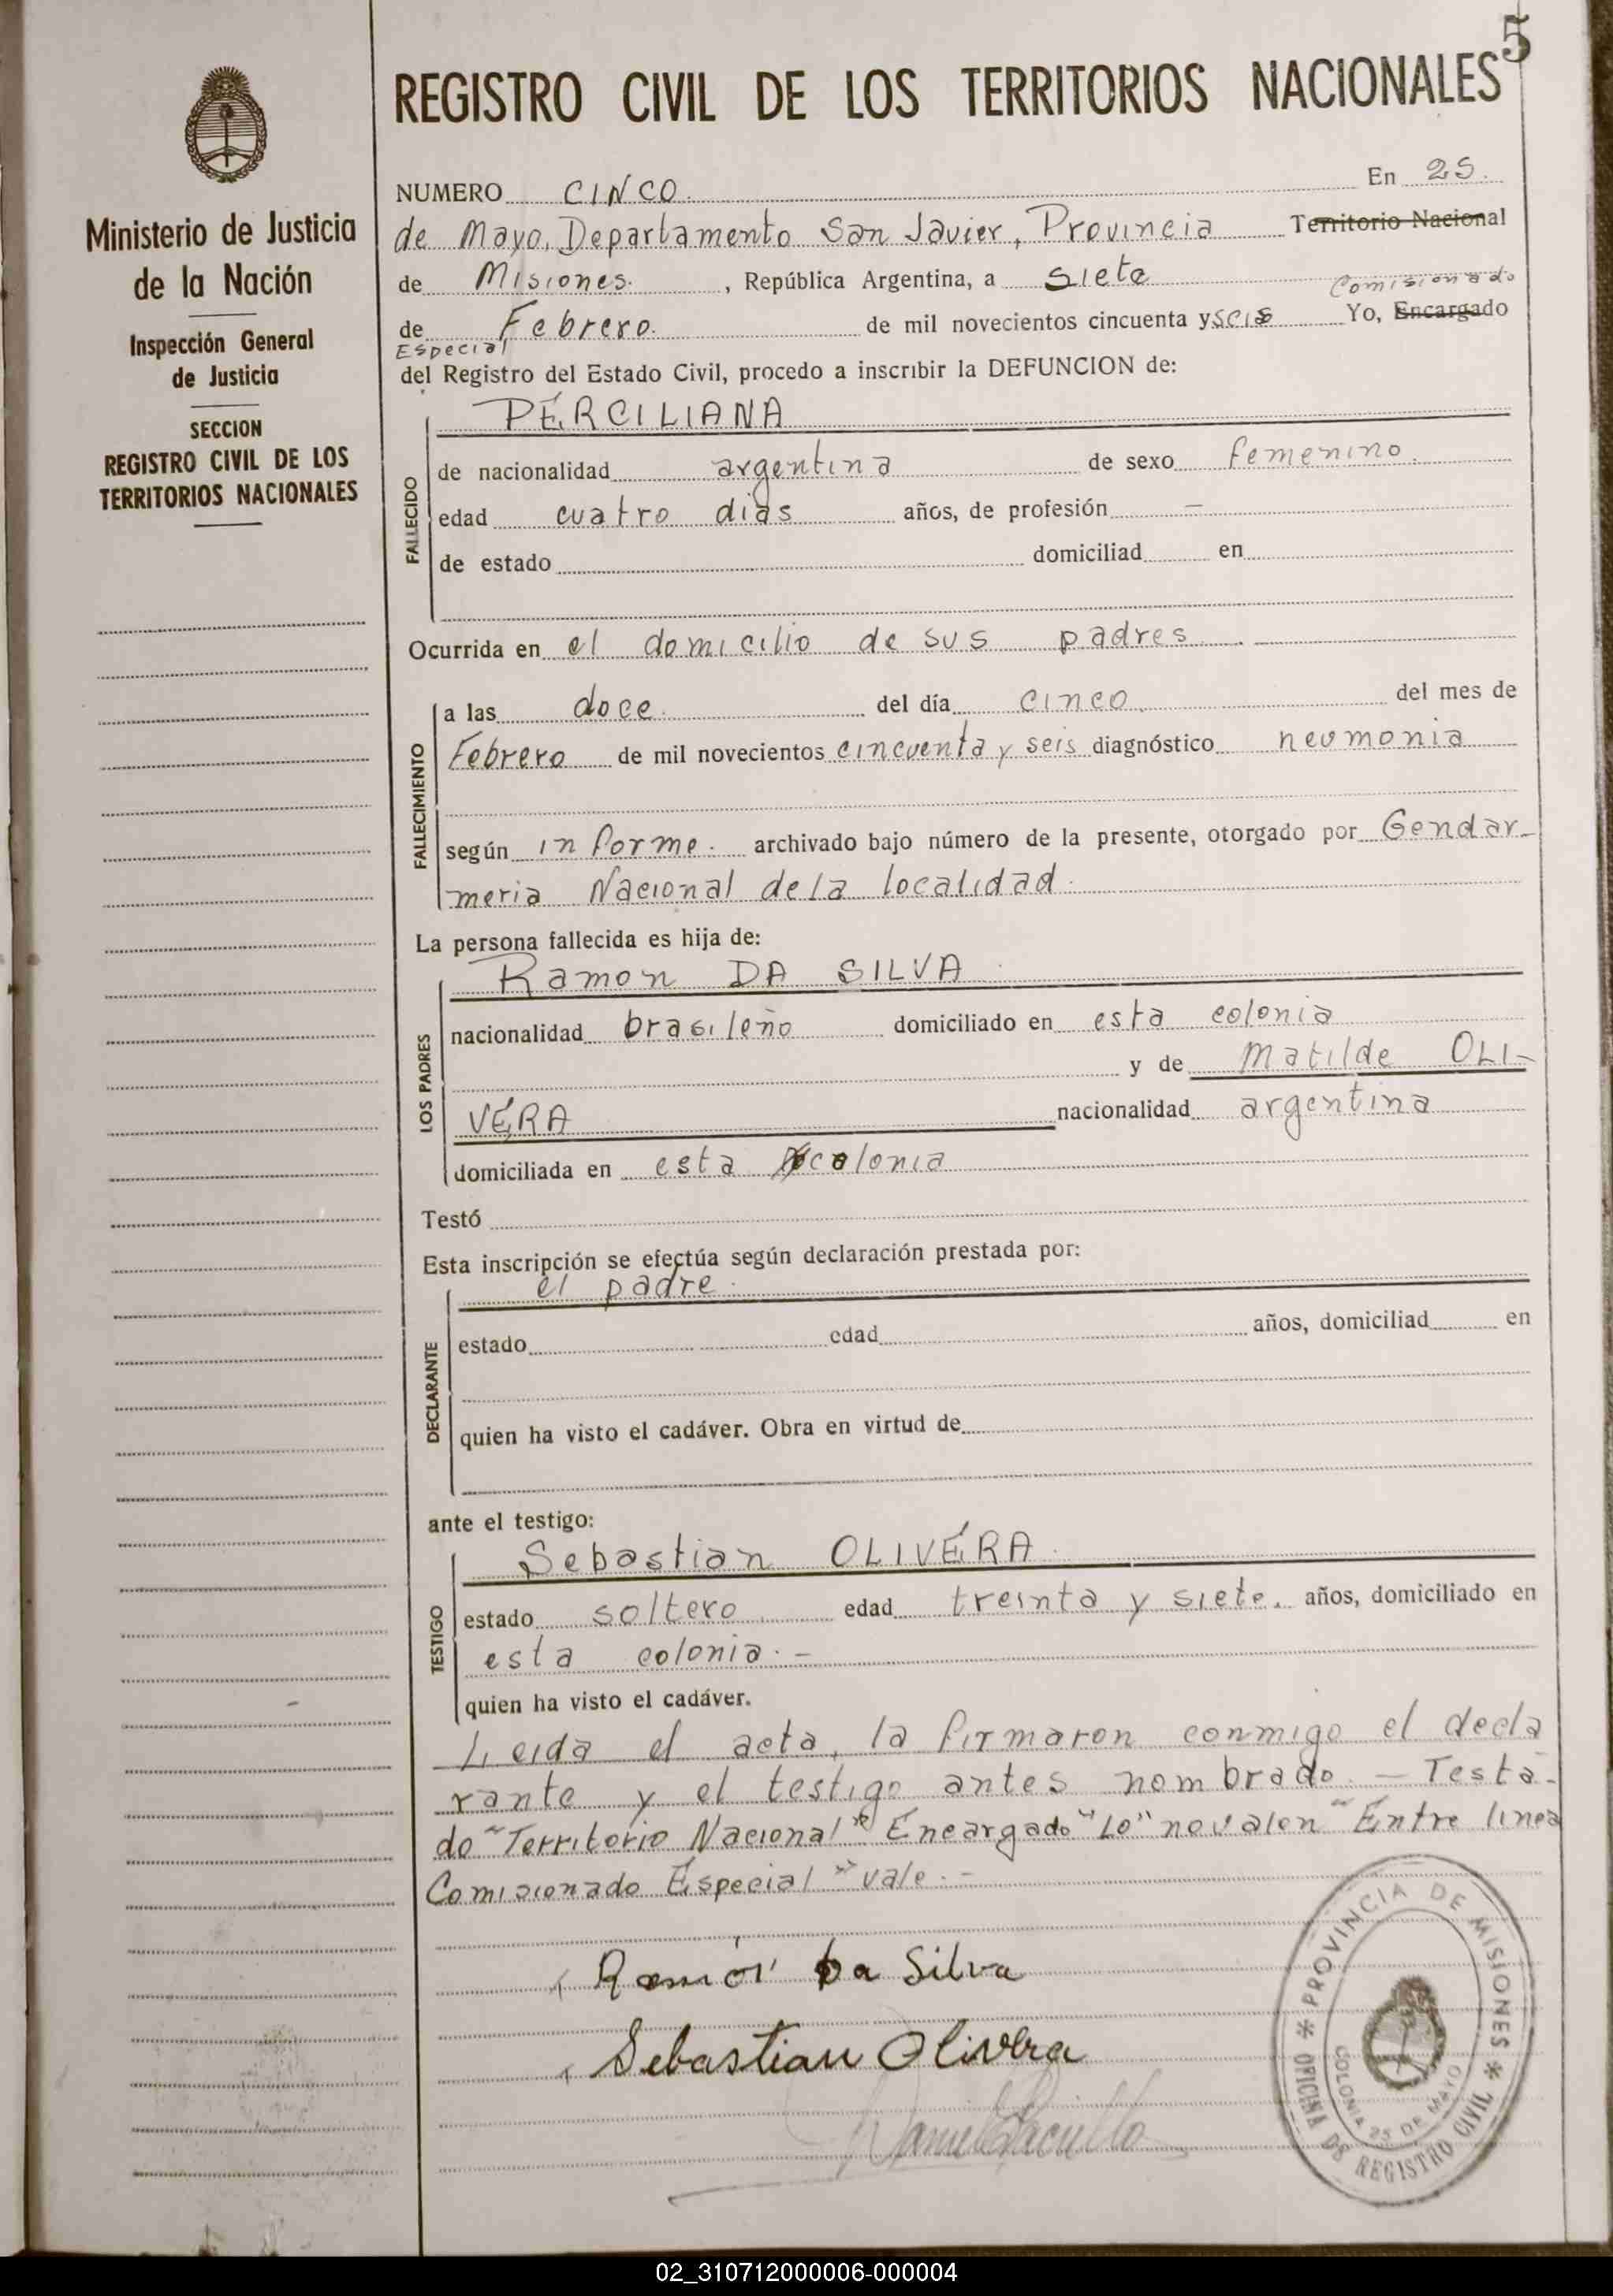 5
REGISTRO CIVIL DE LOS TERRITORIOS NACIONALES
Ministerio de Justicia
de la Nación
Inspección General
de Justicia
SECCION
REGISTRO CIVIL DE LOS
TERRITORIOS NACIONALES
NUMERO CINCO. En 25.
de Mayo, Departamento San Javier, Provincia Territorio Nacional
de Misiones. , República Argentina, a siete
Comisionado
de Febrero. de mil novecientos cincuenta y seis Yo, Encargado
Especial
del Registro del Estado Civil, procedo a inscribir la DEFUNCION de:
PERCILIANA
FALLECIDO
de nacionalidad argentina de sexo femenino.
edad cuatro dias años, de profesión —
de estado domiciliad en
Ocurrida en el domicilio de sus padres
FALLECIMIENTO
a las doce. del día cinco. del mes de
Febrero de mil novecientos cincuenta y seis diagnóstico neumonia
según informe. archivado bajo número de la presente, otorgado por Gendar-
meria Nacional de la localidad.
La persona fallecida es hija de:
LOS PADRES
Ramon DA SILVA
nacionalidad brasileño domiciliado en esta colonia
y de Matilde OLI-
VERA nacionalidad argentina
domiciliada en esta colonia
Testó
Esta inscripción se efectúa según declaración prestada por:
DECLARANTE
el padre.
estado edad años, domiciliad en
quien ha visto el cadáver. Obra en virtud de
ante el testigo:
TESTIGO
Sebastian OLIVERA.
estado soltero edad treinta y siete. años, domiciliado en
esta colonia. —
quien ha visto el cadáver.
Leida el acta, la firmaron conmigo el decla
rante y el testigo antes nombrado. — Testa-
do "Territorio Nacional" Encargado "Lo" no valen "Entre linea
Comisionado Especial" vale. —
Ramón Da Silva
Sebastian Olivera
PROVINCIA DE MISIONES
OFICINA DE REGISTRO CIVIL
COLONIA 25 DE MAYO
02_310712000006-000004